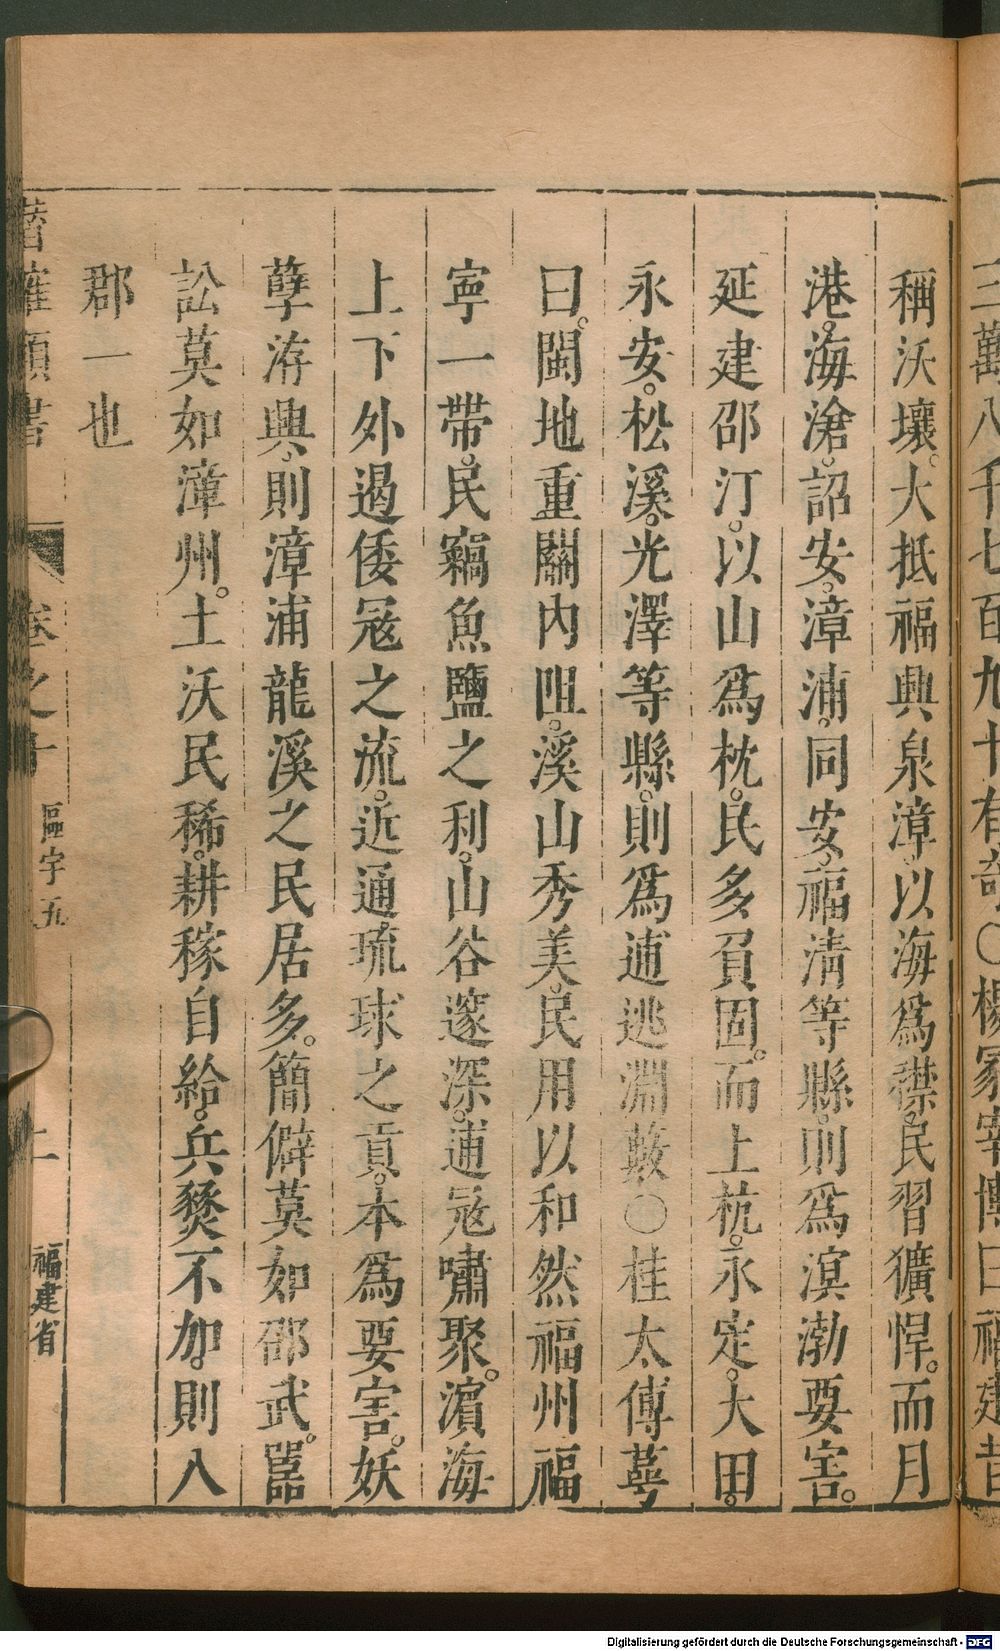 二萬八千七百九十有奇○楊冢宰博曰福建昔
稱沃壤。大抵福興泉漳。以海爲襟。民習獷悍。而月
港。海滄。詔安。漳浦。同安。福清等縣。則爲溟渤要害。
延建邵汀。以山爲枕。民多負固。而上杭。永定。大田。
永安。松溪。光澤等縣。則爲逋逃淵藪○桂太傅萼
曰。閩地重關內阻。溪山秀美。民用以和然福州福
寧一帶。民竊魚鹽之利。山谷邃深。逋冦嘯聚。濵海
上下外遏倭冦之流。近通琉球之貢。本爲要害。妖
孽洊興。則漳浦龍溪之民居多。簡僻莫如邵武。嚚
訟莫如漳州。土沃民稀。耕稼自給。兵燹不加。則八
郡一也
卷之十
區宇五
二
福建省
Digitalisierung gefördert durch die Deutsche Forschungsgemeinschaft - DFG